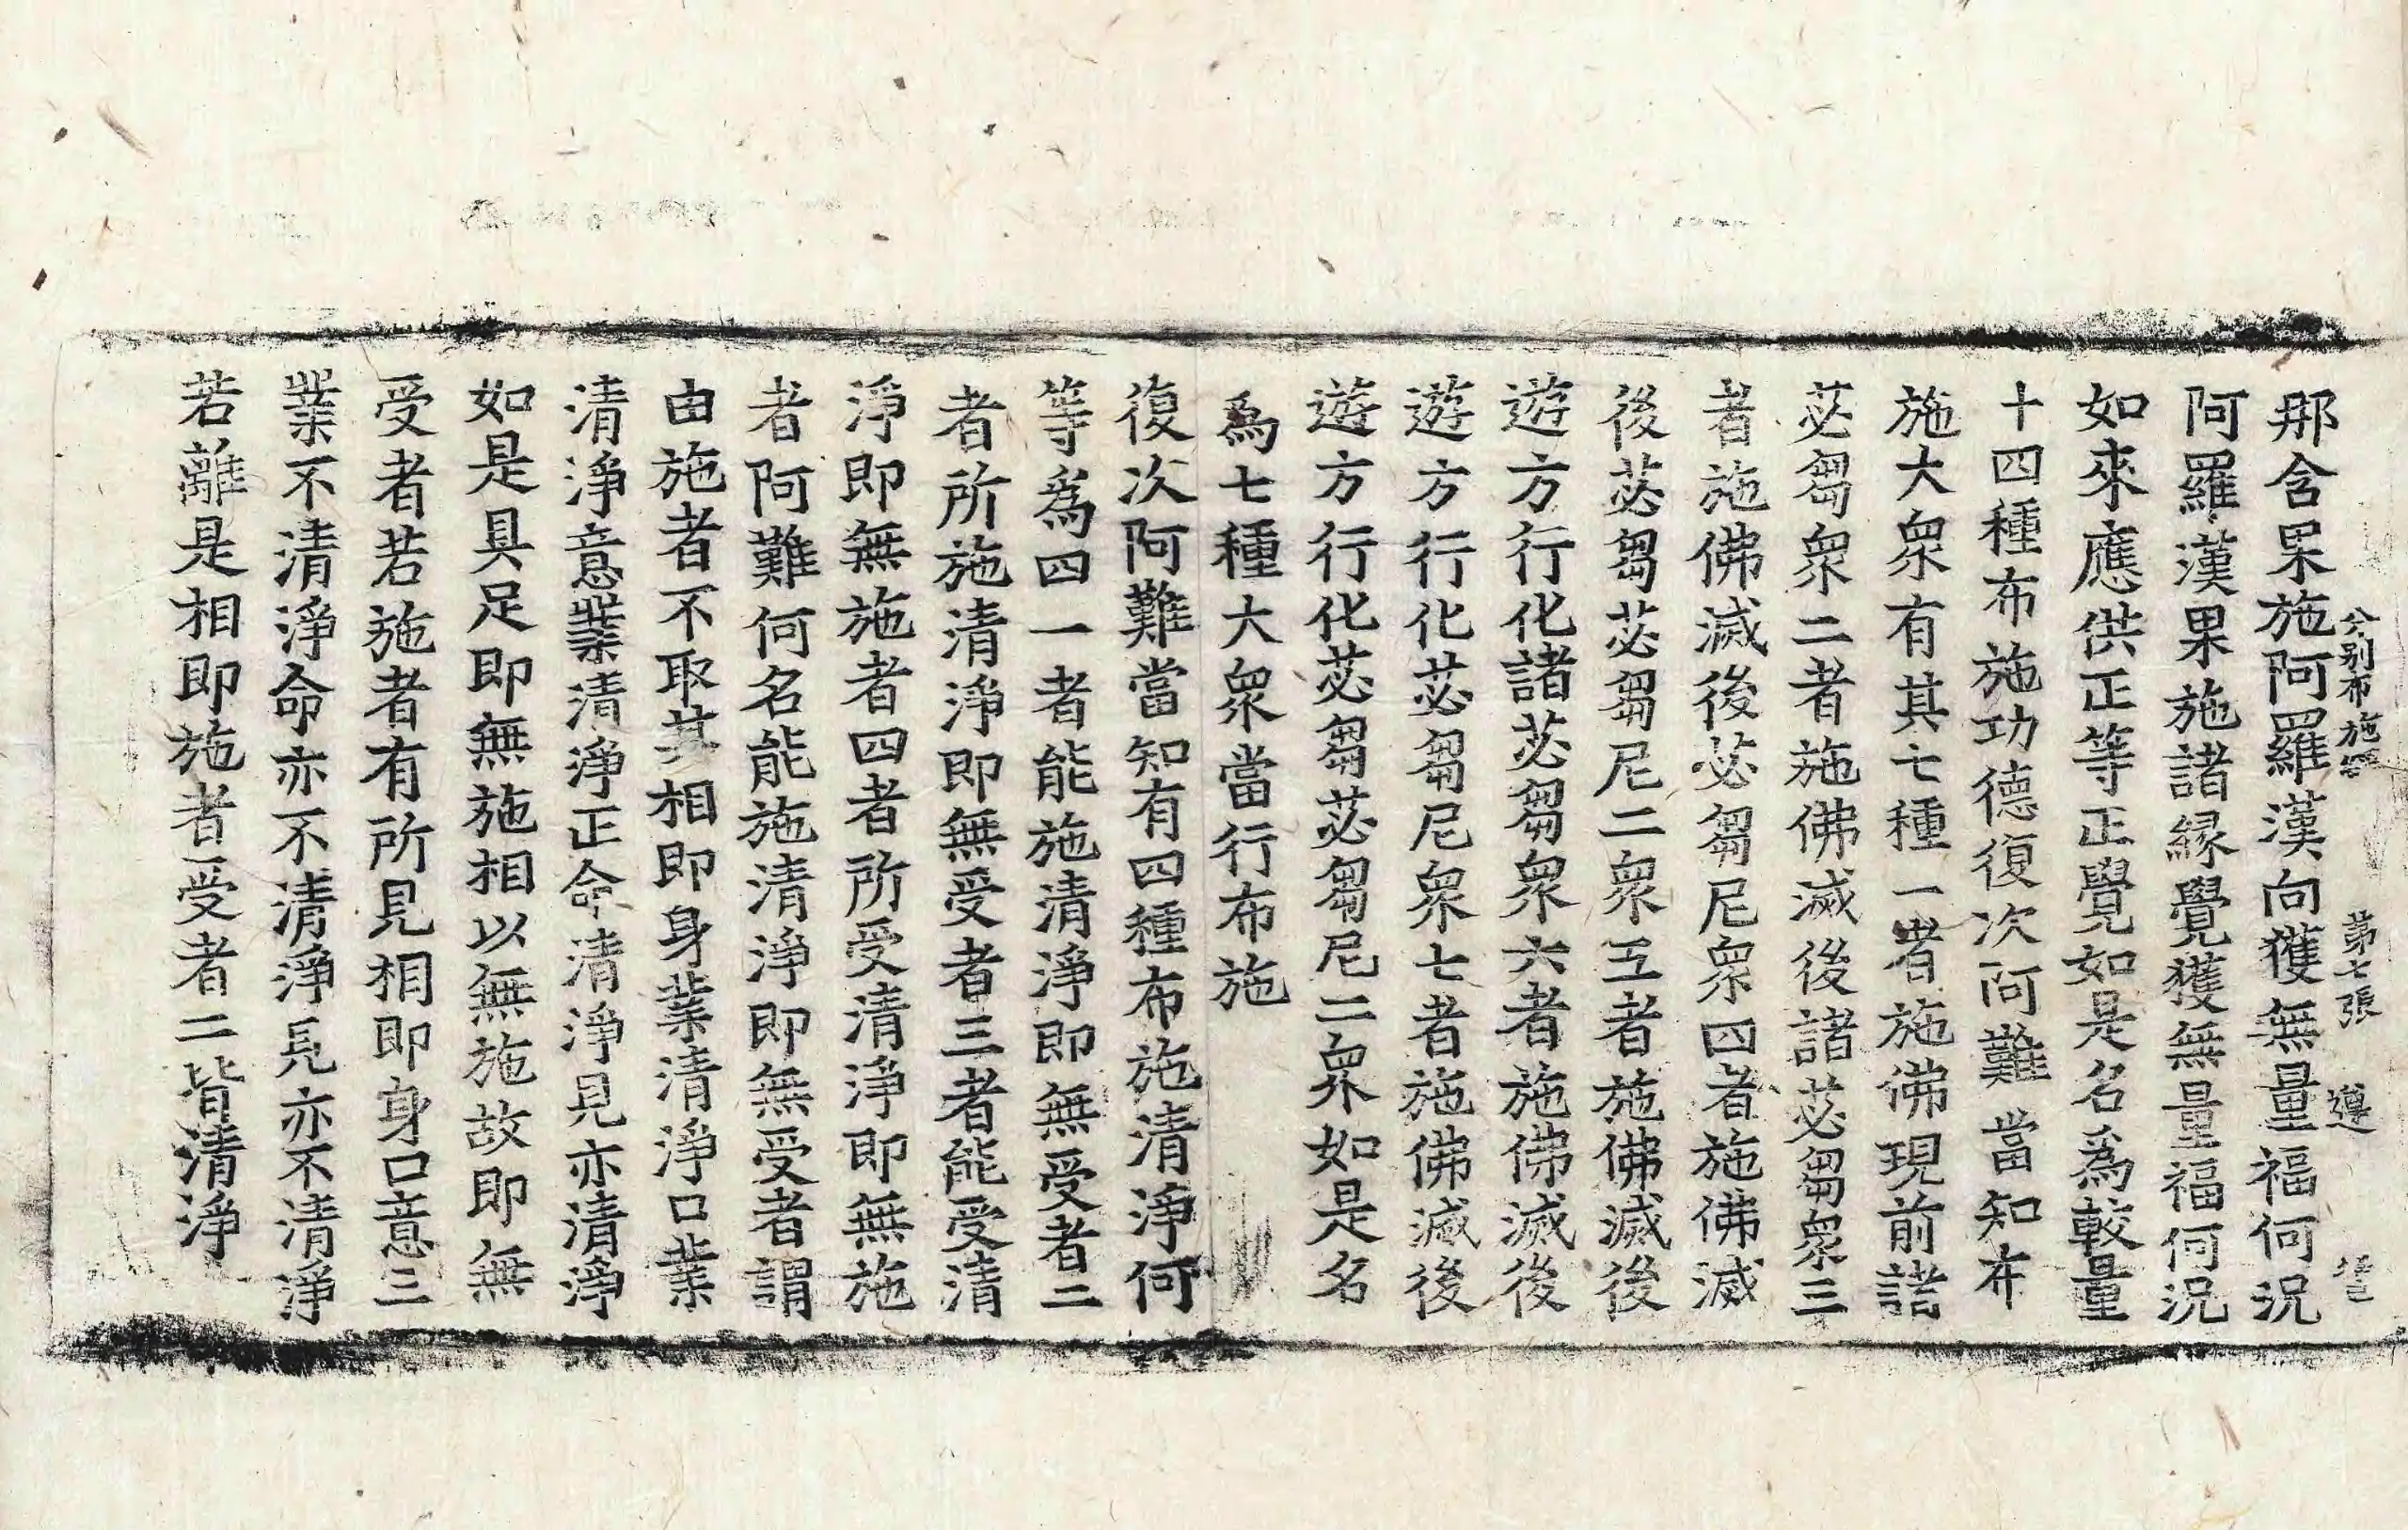 分別布施經 第七張 遵
那含果施阿羅漢向獲無量福何況
阿羅漢果施諸緣覺獲無量福何況
如來應供正等正覺如是名爲較量
十四種布施功德復次阿難當知布
施大衆有其七種一者施佛現前諸
苾芻衆二者施佛滅後諸苾芻衆三
者施佛滅後苾芻尼衆四者施佛滅
後苾芻苾芻尼二衆五者施佛滅後
遊方行化諸苾芻衆六者施佛滅後
遊方行化苾芻尼衆七者施佛滅後
遊方行化苾芻苾芻尼二衆如是名
爲七種大衆當行布施
復次阿難當知有四種布施清淨何
等爲四一者能施清淨即無受者二
者所施清淨即無受者三者能受清
淨即無施者四者所受清淨即無施
者阿難何名能施清淨即無受者謂
由施者不取其相即身業清淨口業
清淨意業清淨正命清淨見亦清淨
如是具足即無施相以無施故即無
受者若施者有所見相即身口意三
業不清淨命亦不清淨見亦不清淨
若離是相即施者受者二皆清淨